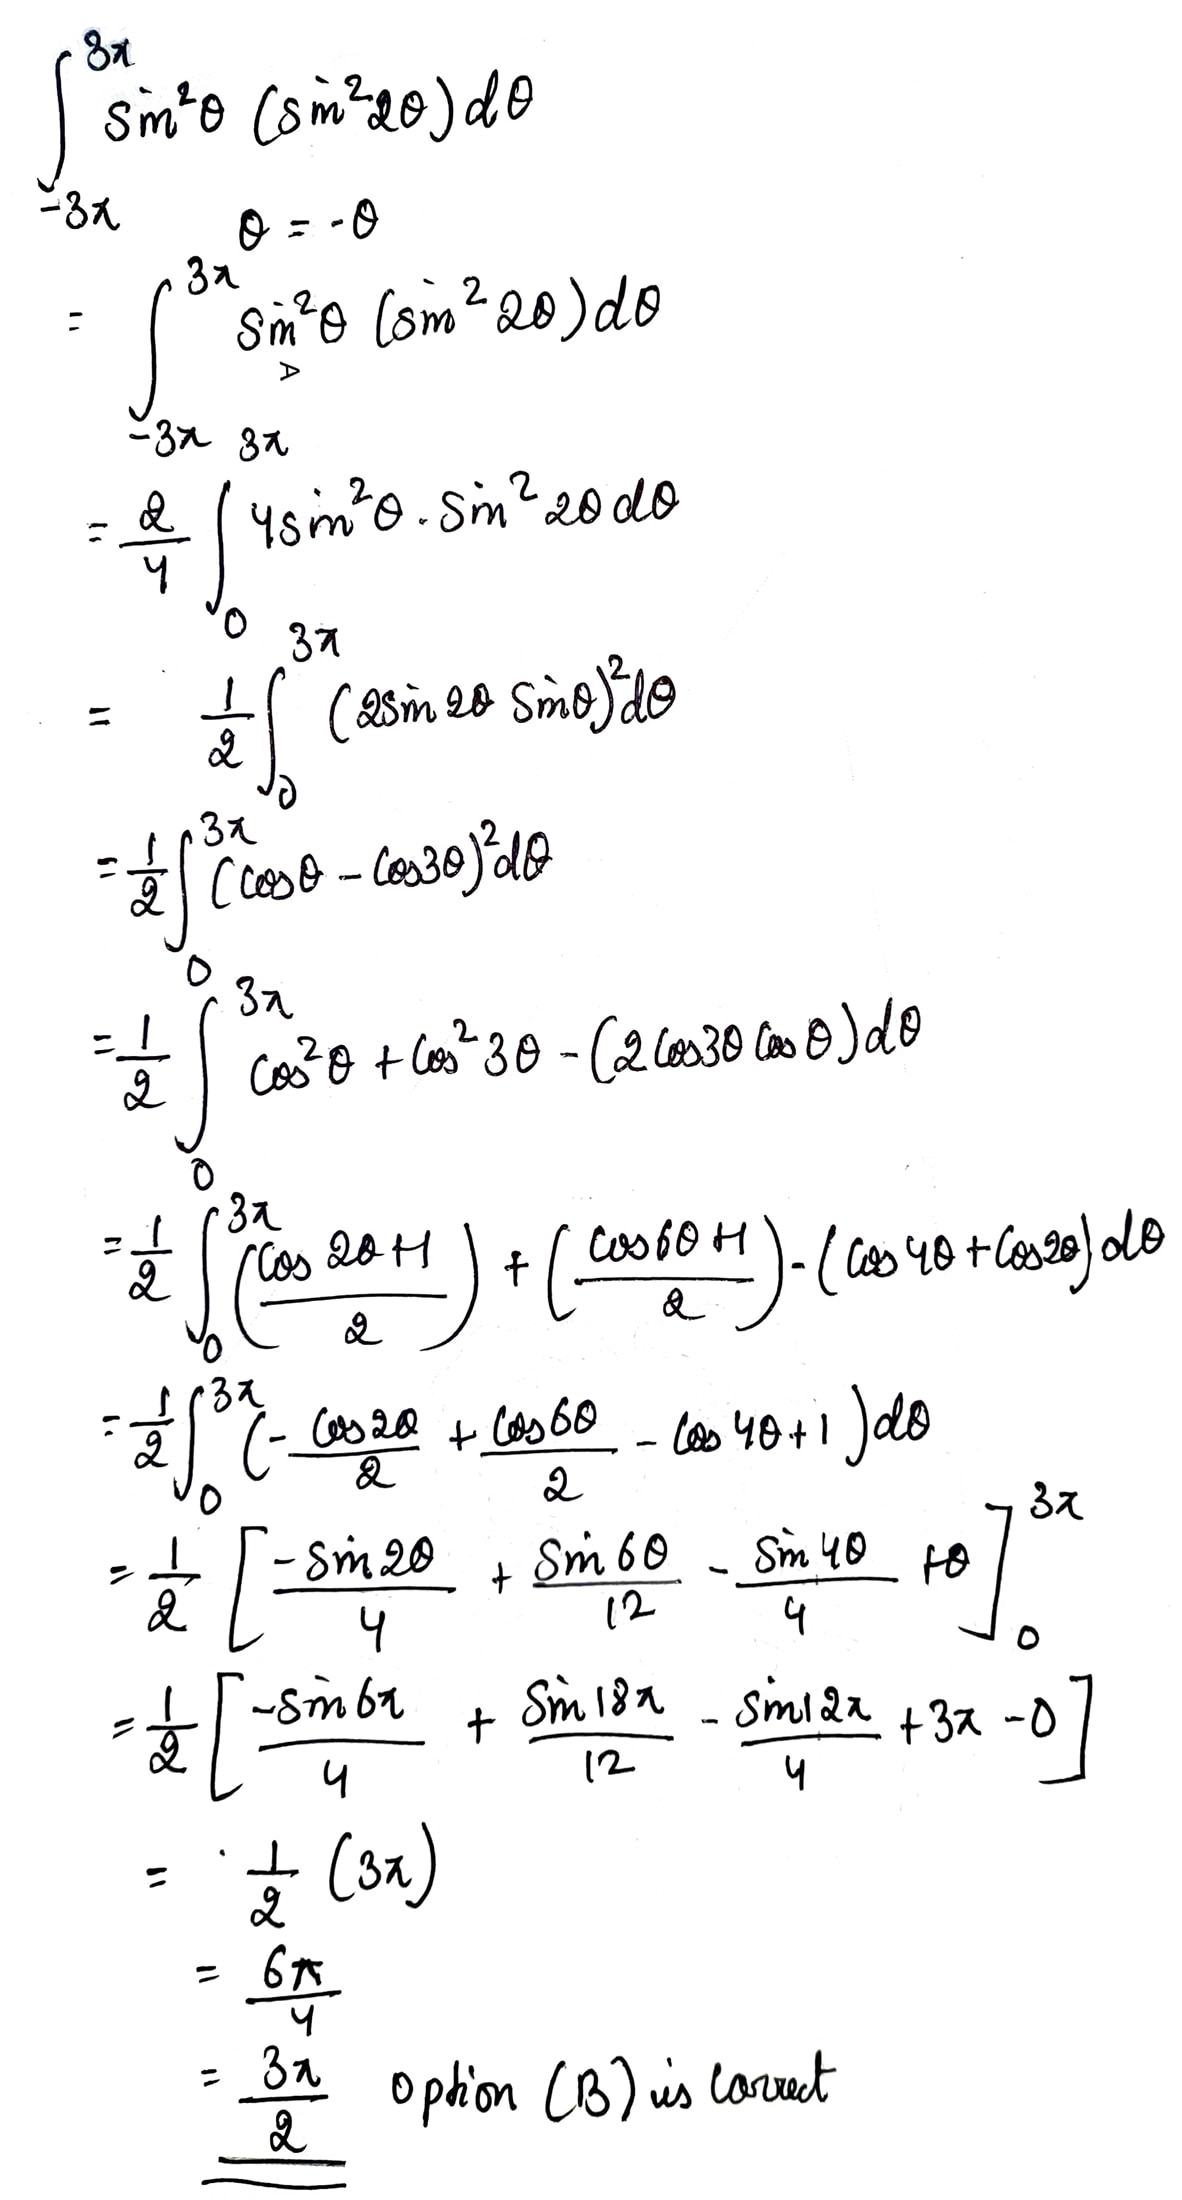 ∫_{-3π}^{3π} sin²θ (sin²2θ) dθ
θ = -θ
= ∫_{-3π}^{3π} sin²θ (sin² 2θ) dθ
= 2/4 ∫_0^{3π} 4sin²θ . sin² 2θ dθ
= 1/2 ∫_0^{3π} (2sin 2θ sinθ)² dθ
= 1/2 ∫_0^{3π} (cosθ - cos3θ)² dθ
= 1/2 ∫_0^{3π} cos²θ + cos² 3θ - (2 cos3θ cos θ) dθ
= 1/2 ∫_0^{3π} ((cos 2θ+1)/2) + ((cos6θ+1)/2) - (cos 4θ + cos2θ) dθ
= 1/2 ∫_0^{3π} (- cos2θ/2 + cos6θ/2 - cos 4θ + 1) dθ
= 1/2 [-sin2θ/4 + sin6θ/12 - sin4θ/4 + θ]_0^{3π}
= 1/2 [-sin6π/4 + sin18π/12 - sin12π/4 + 3π - 0]
= 1/2 (3π)
= 6π/4
= 3π/2 option (B) is correct